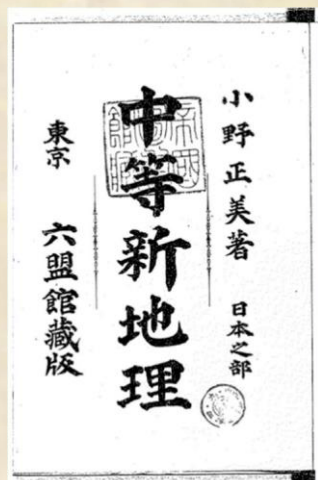 小野正美著 日本之部
中等新地理
東京 六盟館藏版